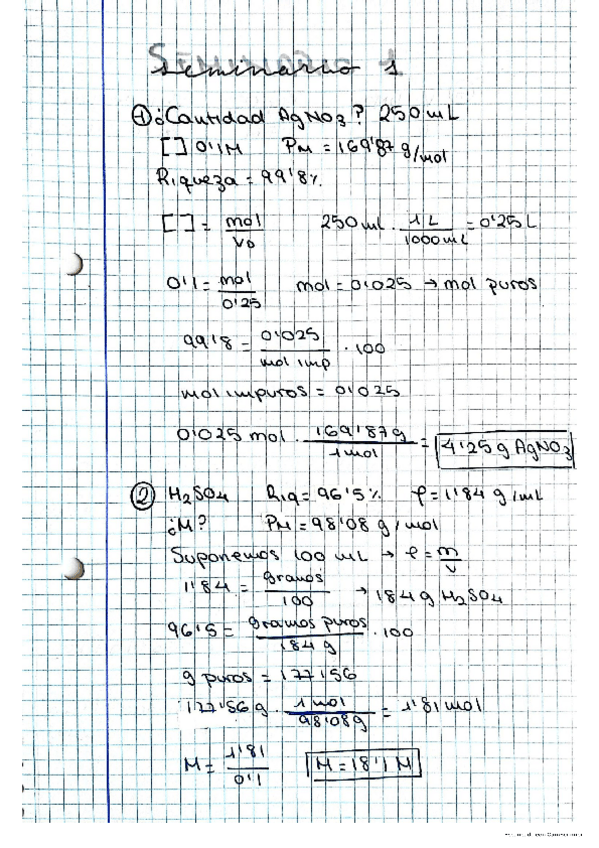 Seminario 1
① ¿Cantidad AgNO3? 250 mL
[ ] 0'1M PM = 169'87 g/mol
Riqueza = 99'8%
[ ] = mol/Vo 250 ml · 1 L/1000 mL = 0'25 L
0'1 = mol/0'25 mol = 0'025 → mol puros
99'8 = 0'025/mol imp · 100
mol impuros = 0'025
0'025 mol · 169'87 g/1 mol = 4'25 g AgNO3
② H2SO4 Riq = 96'5% ρ = 1'84 g/mL
¿M? PM = 98'08 g/mol
Suponemos 100 mL → ρ = m/v
1'84 = gramos/100 → 184 g H2SO4
96'5 = gramos puros/184 g · 100
g puros = 177'56
177'56 g · 1 mol/98'08 g = 1'81 mol
M = 1'81/0'1 M = 18'1 M